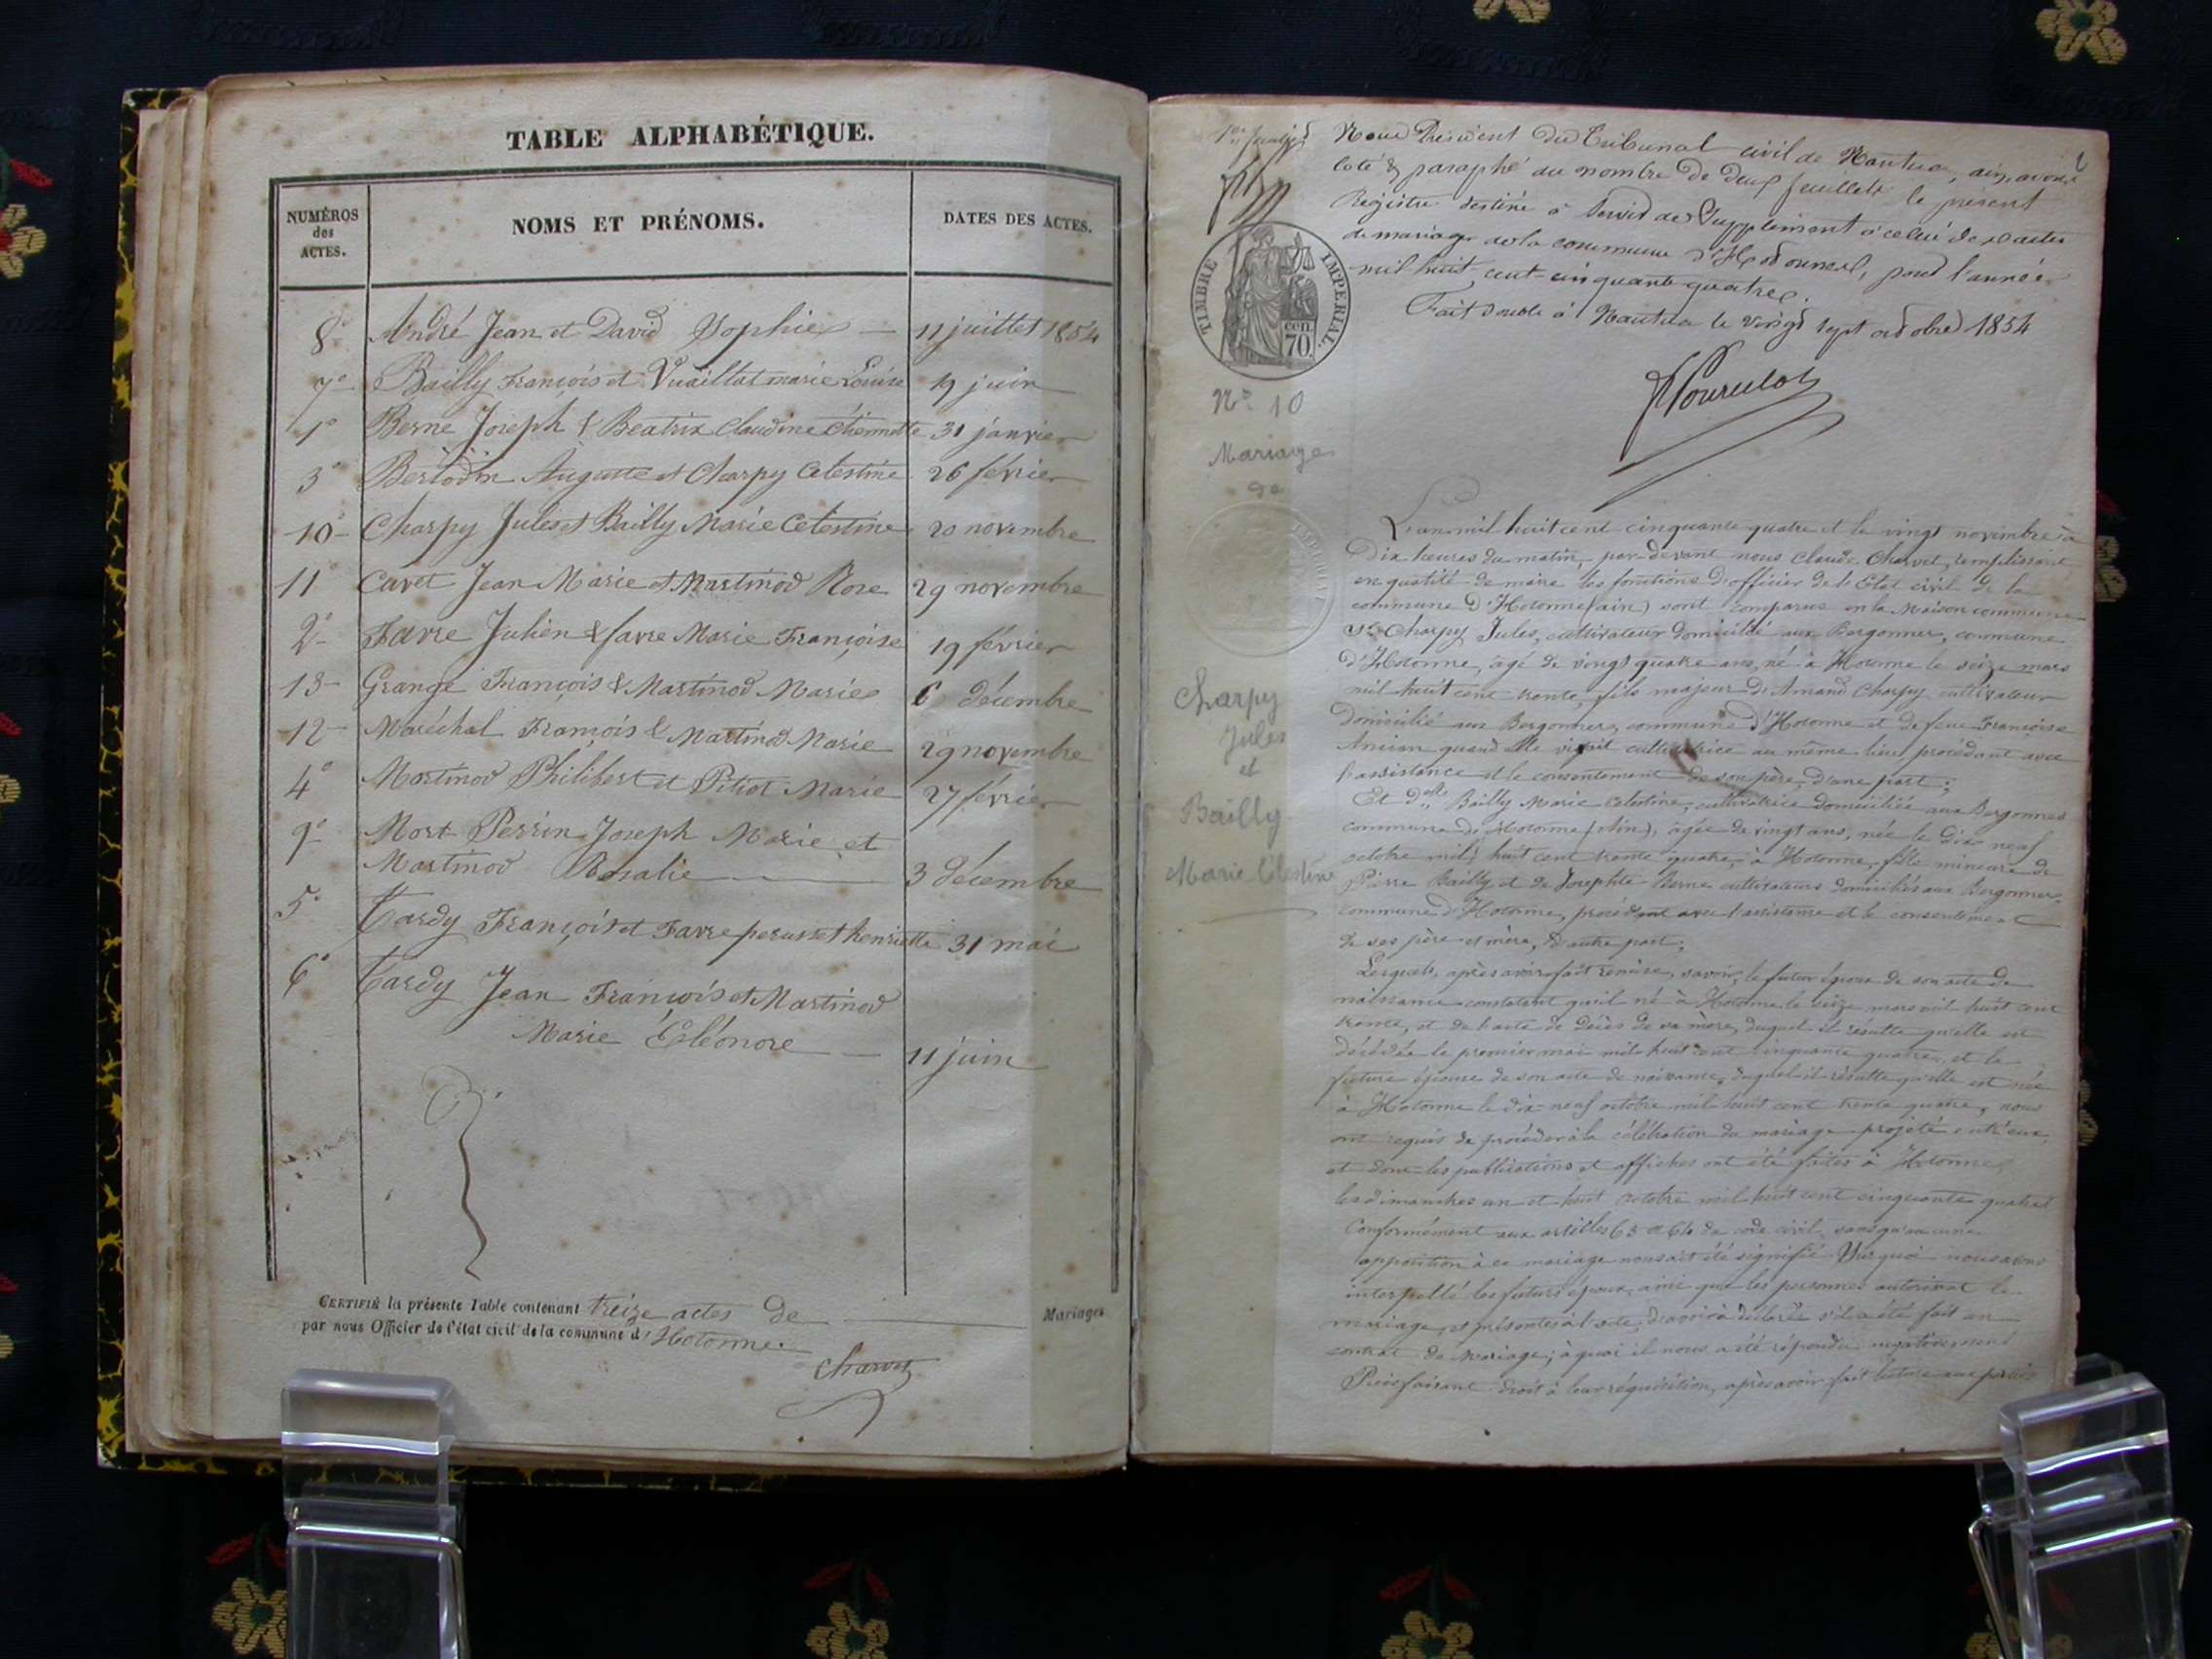 TABLE ALPHABÉTIQUE.
NUMÉROS des ACTES.
NOMS ET PRÉNOMS.
DATES DES ACTES.
8° André Jean et David Sophie — 11 juillet 1854
7° Bailly François et Vuaillat marie Louise 19 juin
1° Berne Joseph & Beatrix Claudine étiennette 31 janvier
3° Auguste et Charpy Celestine 26 février
10° Charpy Jules et Bailly Marie Celestine 20 novembre
11° Cavet Jean Marie et Martinod Rose 29 novembre
2° Favre Julien & favre Marie Françoise 19 février
13 Grange François & Martinod Marie 6 décembre
12 Maréchal François & Martinod Marie 29 novembre
4° Martinod Philibert et Pitiot Marie 27 février
9° Mort Perrin Joseph Marie et
Martinod Rosalie — 3 décembre
5° Tardy François et Favre henriette 31 mai
6° Tardy Jean François et Martinod
Marie Éléonore — 11 juin
CERTIFIÉ la présente Table contenant treize actes de Mariages
par nous Officier de l'état civil de la commune d'Hotonne.
Charvet
Nous Président du Tribunal civil de Nantua, avons
coté & paraphé au nombre de deux feuillets le présent
Registre destiné à servir de Supplément à celui des actes
de mariage de la commune d'Hotonnes, pour l'année
mil huit cent cinquante quatre.
Fait double à Nantua le vingt sept octobre 1854
TIMBRE IMPÉRIAL.
cen. 70.
N° 10
Mariage
de
Charpy
Jules
et
Bailly
Marie Célestine
L'an mil huit cent cinquante quatre et le vingt novembre à
Dix heures du matin, par-devant nous Claude Charvet, remplissant
en qualité de maire les fonctions d'officier de l'Etat civil de la
commune d'Hotonne (ain) sont comparus en la Maison commune
Sr Charpy Jules, cultivateur domicilié aux Bergonnes, commune
d'Hotonne, âgé de vingt quatre ans, né à Hotonne le seize mars
mil huit cent trente, fils majeur d'Amand Charpy cultivateur
domicilié aux Bergonnes, commune d'Hotonne et de feue Françoise
quand elle vivait cultivatrice au même lieu, procédant avec
l'assistance et le consentement de son père, d'une part;
Et Dlle Bailly Marie Celestine, cultivatrice domiciliée aux Bergonnes
commune d'Hotonne (Ain), âgée de vingt ans, née le dix neuf
octobre mil huit cent trente quatre, à Hotonne, fille mineure de
Pierre Bailly et de Josephte Berne cultivateurs domiciliés aux Bergonnes
commune d'Hotonne, procédant avec l'assistance et le consentement
de ses père et mère, d'autre part;
Lesquels, après avoir fait remise, savoir, le futur époux de son acte de
naissance constatant qu'il né à Hotonne le seize mars mil huit cent
trente, et de l'acte de décès de sa mère, duquel il résulte qu'elle est
décédée le premier mai mil huit cent cinquante quatre, et la
future épouse de son acte de naissance, duquel il résulte qu'elle est née
à Hotonne le dix-neuf octobre mil huit cent trente quatre, nous
ont requis de procéder à la célébration du mariage projeté entr'eux,
et dont les publications et affiches ont été faites à Hotonne
les dimanches un et huit octobre mil huit cent cinquante quatre
Conformément aux articles 63 et 64 du code civil, sans qu'aucune
opposition à ce mariage nous ait été signifié. Sur quoi nous avons
interpellé les futurs époux, ainsi que les personnes autorisant le
mariage, et présentes à l'acte, d'avoir à déclarer s'il a été fait un
contrat de mariage; à quoi il nous a été répondu négativement
Puis faisant droit à leur réquisition, après avoir fait lecture aux parties